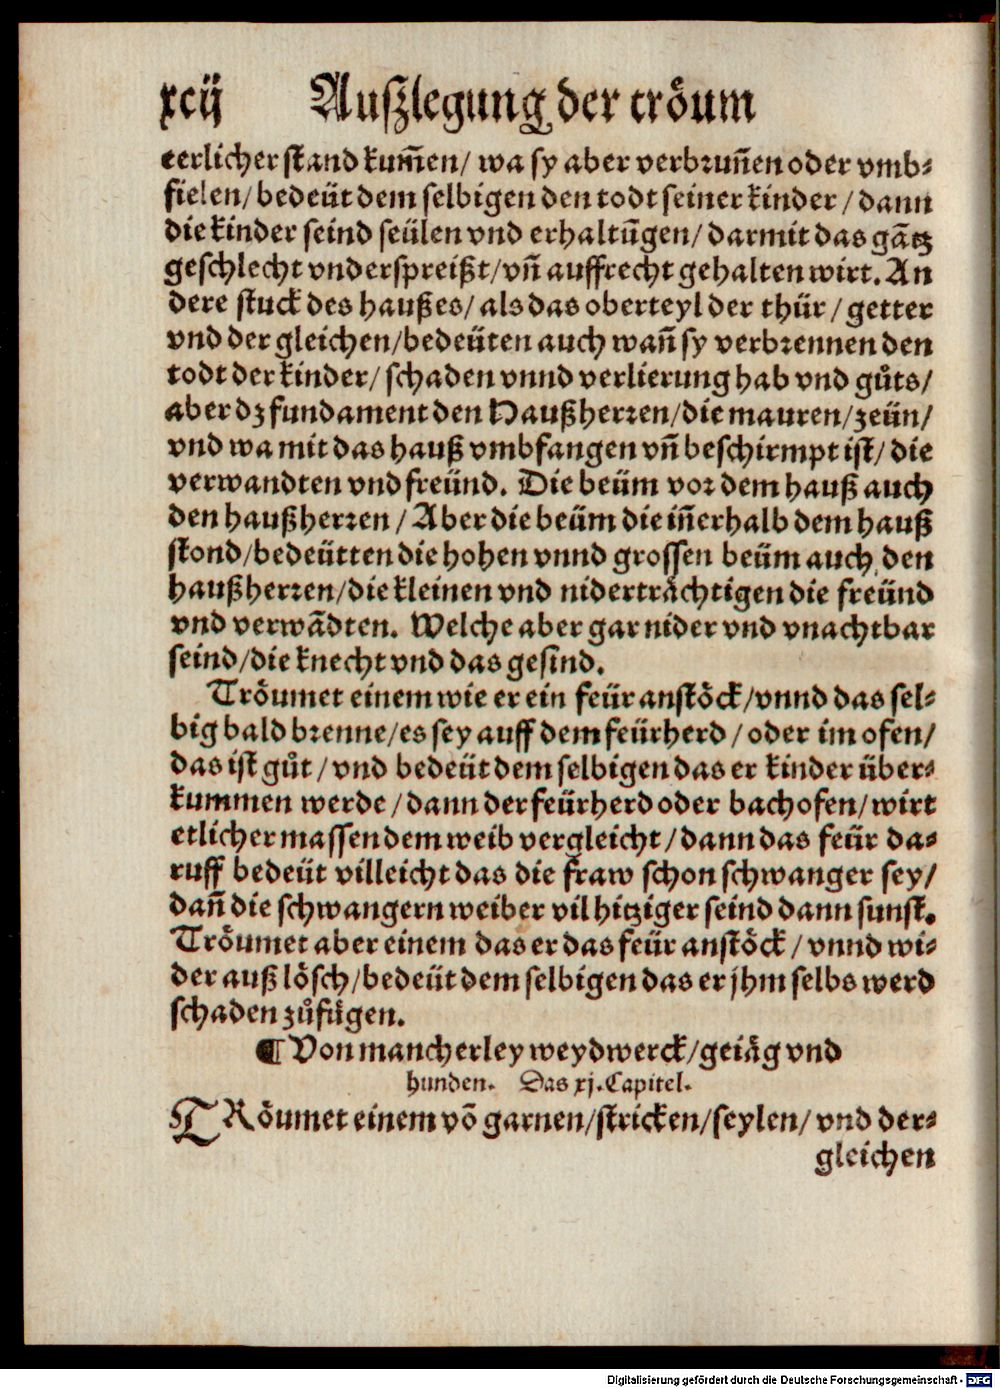 xcij Auſzlegung der tröum
eerlicher ſtand kum̄en/ wa ſy aber verbꝛun̄en oder vmb⸗
fielen/ bedeüt dem ſelbigen den todt ſeiner kinder / dann
die kinder ſeind ſeülen vnd erhaltūgen/ darmit das gātz
geſchlecht vnderſpreißt/ vn̄ auffrecht gehalten wirt. An
dere ſtuck des haußes/ als das oberteyl der thür / getter
vnd der gleichen/ bedeüten auch wan̄ ſy verbꝛennen den
todt der kinder/ ſchaden vnnd verlierung hab vnd gůts/
aber dz fundament den Haußherꝛen/ die mauren/ zeün/
vnd wa mit das hauß vmbfangen vn̄ beſchirmpt iſt/ die
verwandten vnd freünd. Die beüm voꝛ dem hauß auch
den haußherꝛen / Aber die beüm die in̄erhalb dem hauß
ſtond/ bedeütten die hohen vnnd groſſen beüm auch den
haußherꝛen/ die kleinen vnd niderträchtigen die freünd
vnd verwādten. Welche aber gar nider vnd vnachtbar
ſeind/ die knecht vnd das geſind.
Tröumet einem wie er ein feür anſtöck/ vnnd das ſel⸗
big bald bꝛenne/ es ſey auff dem feürherd / oder im ofen/
das iſt gůt / vnd bedeüt dem ſelbigen das er kinder über⸗
kummen werde / dann der feürherd oder bachofen/ wirt
etlicher maſſen dem weib vergleicht / dann das feür da⸗
ruff bedeüt villeicht das die fraw ſchon ſchwanger ſey/
dan̄ die ſchwangern weiber vil hitziger ſeind dann ſunſt.
Tröumet aber einem das er das feür anſtöck / vnnd wi⸗
der auß löſch/ bedeüt dem ſelbigen das er jhm ſelbs werd
ſchaden zůfügen.
¶ Von mancherley weydwerck/ geiäg vnd
hunden. Das xj. Capitel.
TRöumet einem vō garnen/ ſtricken/ ſeylen/ vnd der⸗
gleichen
Digitalisierung gefördert durch die Deutsche Forschungsgemeinschaft - DFG